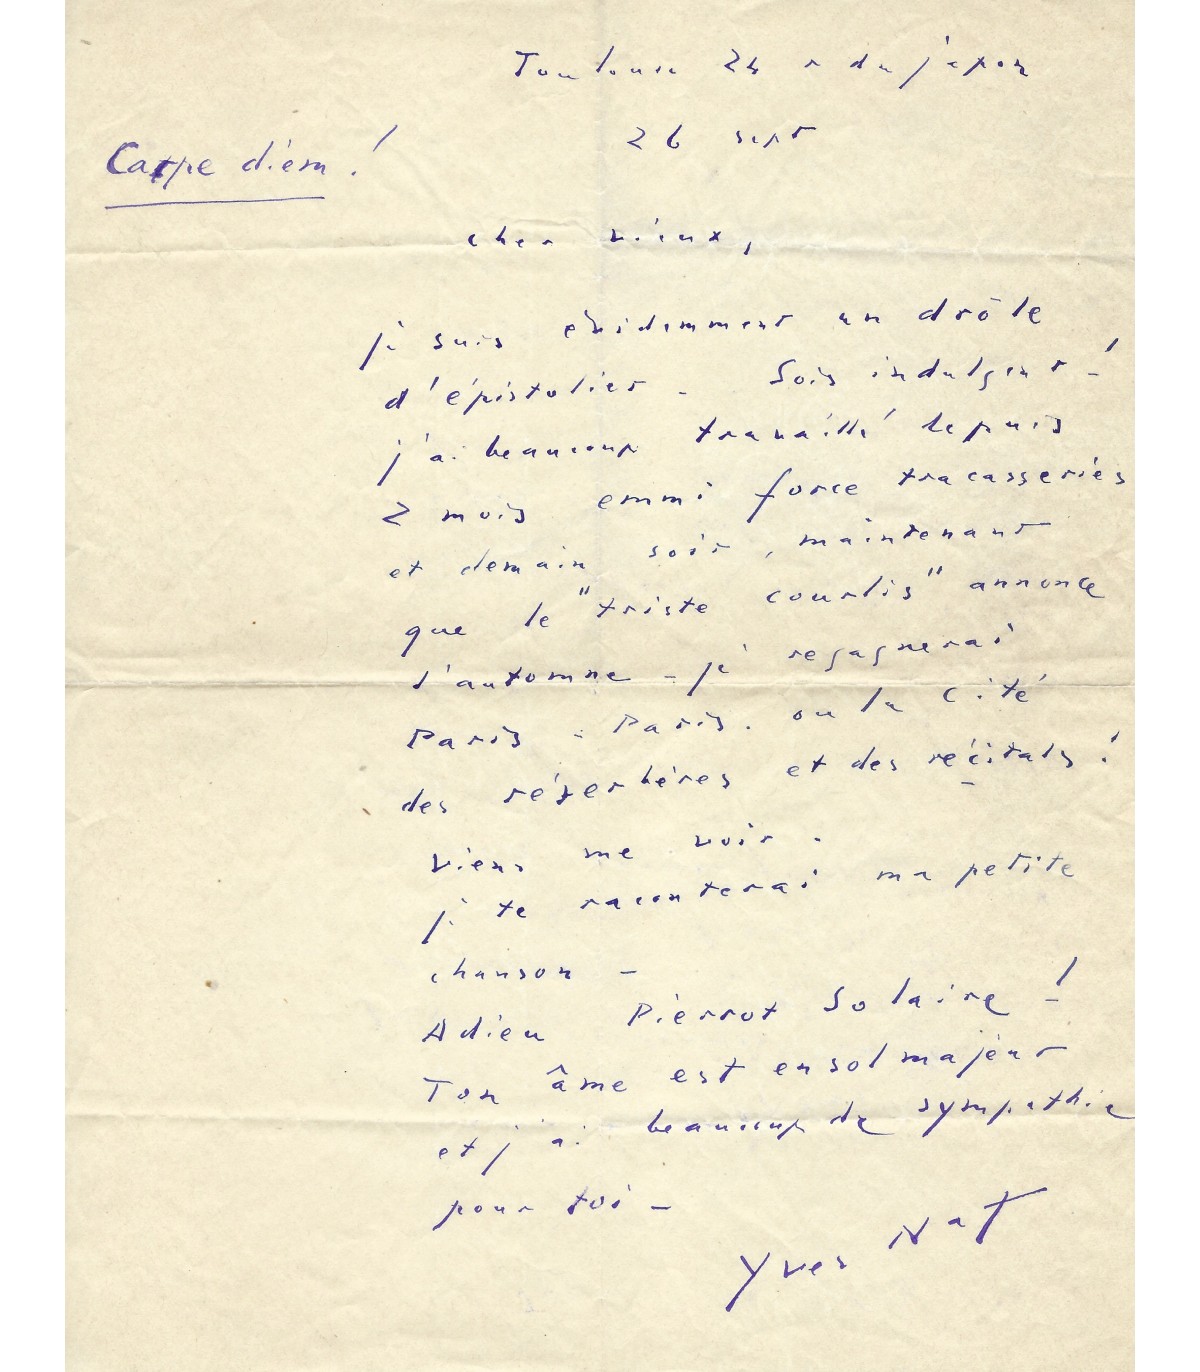 Toulouse 24 r du japon
26 sept
Carpe diem !
cher vieux,
je suis évidemment un drôle
d'épistolier - Sois indulgent !
j'ai beaucoup travaillé depuis
2 mois emmi force tracasseries
et demain soir, maintenant
que le "triste courlis" annonce
l'automne - je regagnerai
Paris - Paris. ou la cité
des réverbères et des récitals !
viens me voir.
je te raconterai ma petite
chanson -
Adieu Pierrot Solaire !
Ton âme est en sol majeur
et j'ai beaucoup de sympathie
pour toi -
Yves Nat